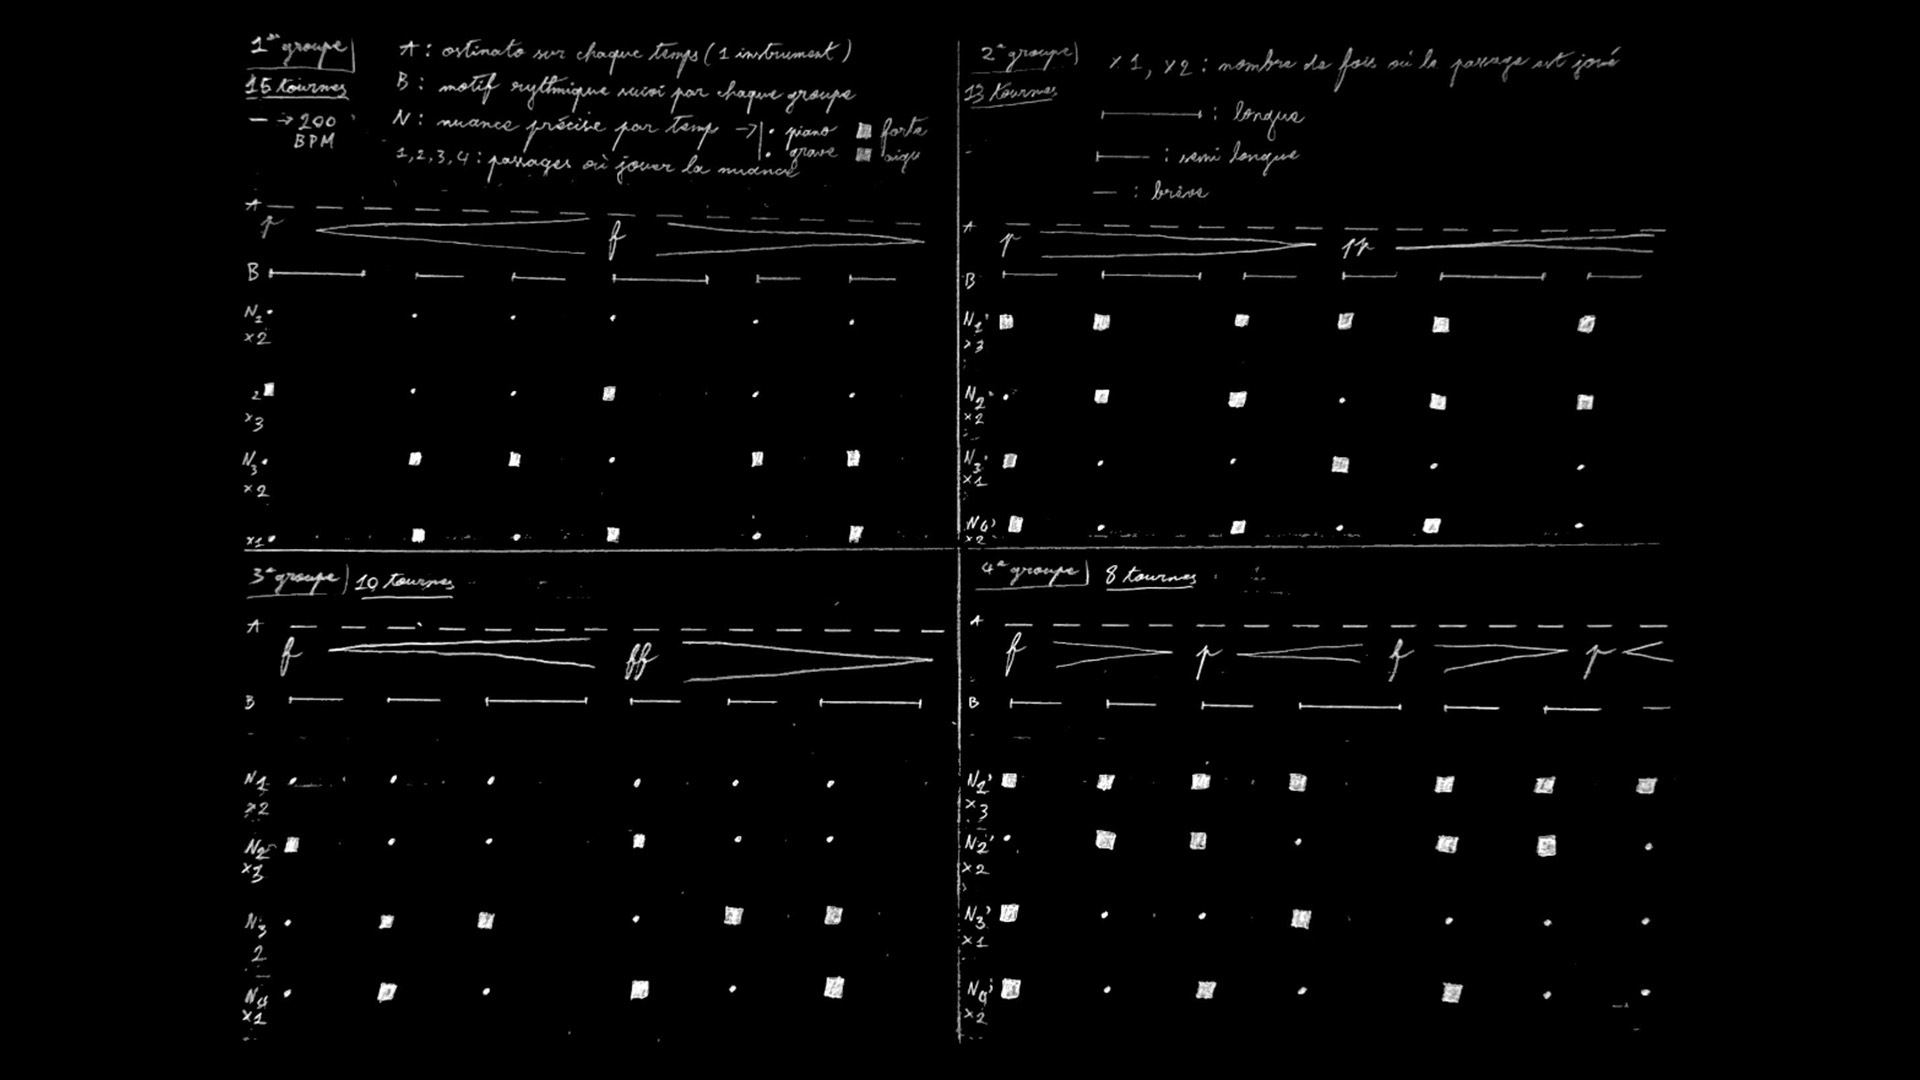 1er groupe
15 tournes
— → 200
BPM
A : ostinato sur chaque temps (1 instrument)
B : motif rythmique suivi par chaque groupe
N : nuance précise par temps → piano forte
grave aigu
1, 2, 3, 4 : passages où jouer la nuance
A
p f
B
N1
x2
2
x3
N3
x2
x1
2e groupe
13 tournes
x1, x2 : nombre de fois où le passage est joué
: longue
: semi longue
: brève
A
p pp
B
N1'
x3
N2'
x2
N3'
x1
N4'
x2
3e groupe 10 tournes
A
f ff
B
N1
x2
N2
x3
N3
2
N4
x1
4e groupe 8 tournes
A
f p f p
B
N1'
x3
N2'
x2
N3'
x1
N4'
x2